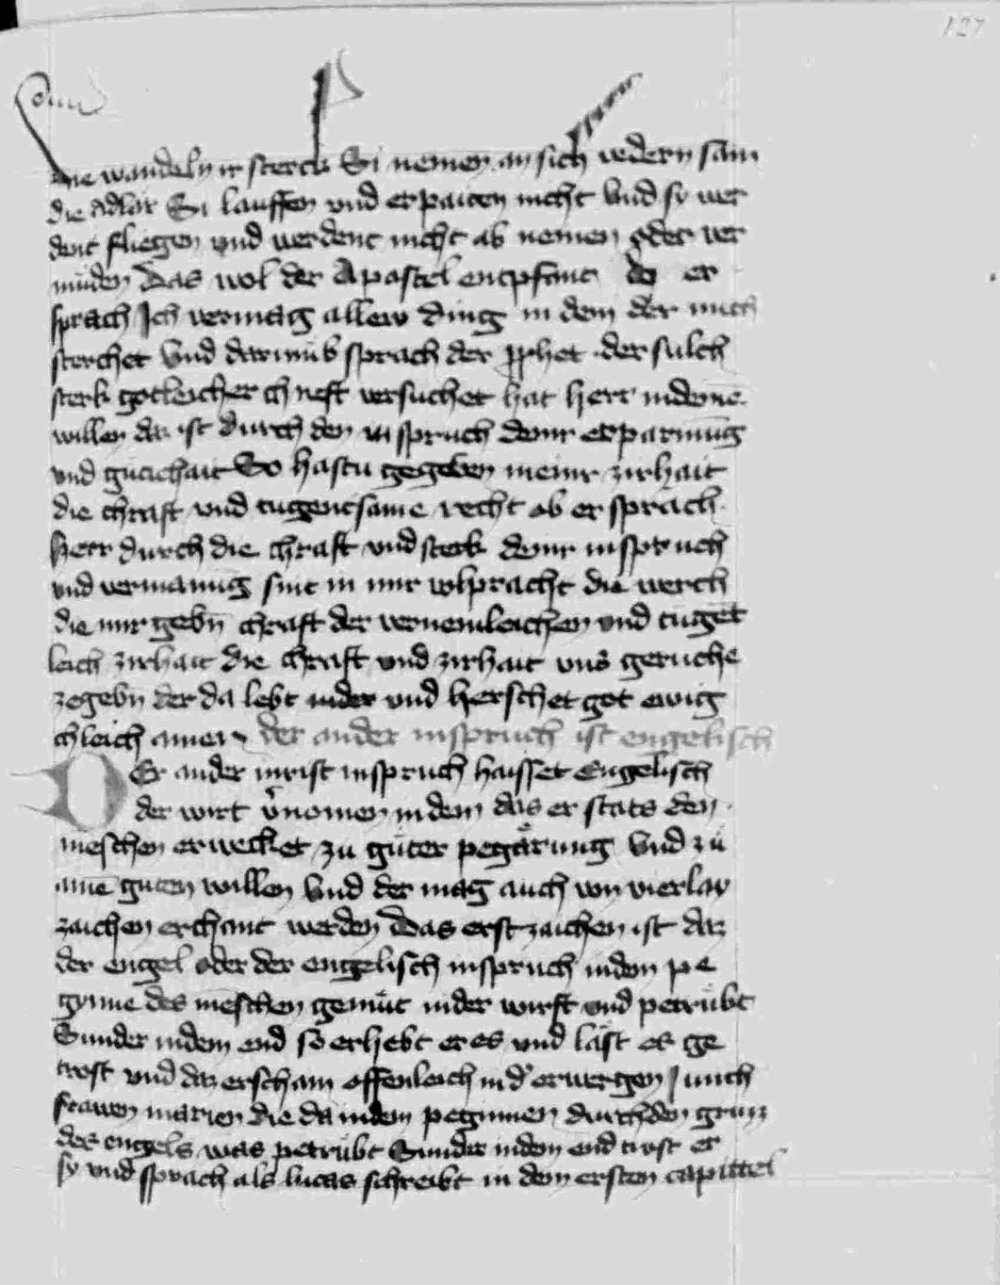 127
die wandeln ir sterck Si nemen an sich vedern sam
die Adlär Si lauffen vnd erpaiten nicht Vnd sy wer
dent fliegen vnd werdent nicht ab nemen oder ver
müden Das wol der Apostel enpfant do er
sprach Ich vermag allew ding in dem der mich
sterchet Vnd darumb sprach der prophet der sulch
sterk gotleicher chreft versuchet hat herr in deinē
willen daz ist durch den inspruch deinr erparmūg
vnd gütichait So hastu gegeben meinr zirhait
die chraft vnd tugentsame recht ob er sprach
herr durch die chraft vnd sterk deinr inspruch
vnd vermanūg sint in mir volpracht die werch
die mir gebn̄ chraft der vernemleichen vnd tugēt
leich zirhait die chraft vnd zirhait vns geruche
zegebn̄ der da lebt vnd herschet got ewig
chleich amen der ander inspruch ist engelisch
DEr ander inspruch haisset Engelisch
der wirt v̄nomen in dem das er stäts den
meschen erwecket zu güter pegärung Vnd zü
aimē guten willen Vnd der mag auch von vierlay
zaichen erchant werden Das erst zaichen ist daz
der engel oder der engelisch inspruch in dem pe
gynne des meschen gemüt nider wirft vnd petrübt
Sunder in dem end so erhebt er es vnd läst es ge
trost vnd daz erscham offenleich in d' erwergen Junch
frawen marien die da in dem peginnen durch den gruzz
des engels was petrübt Sunder in dem end trost er
sy vnd sprach als lucas schreibt in dem ersten capittel